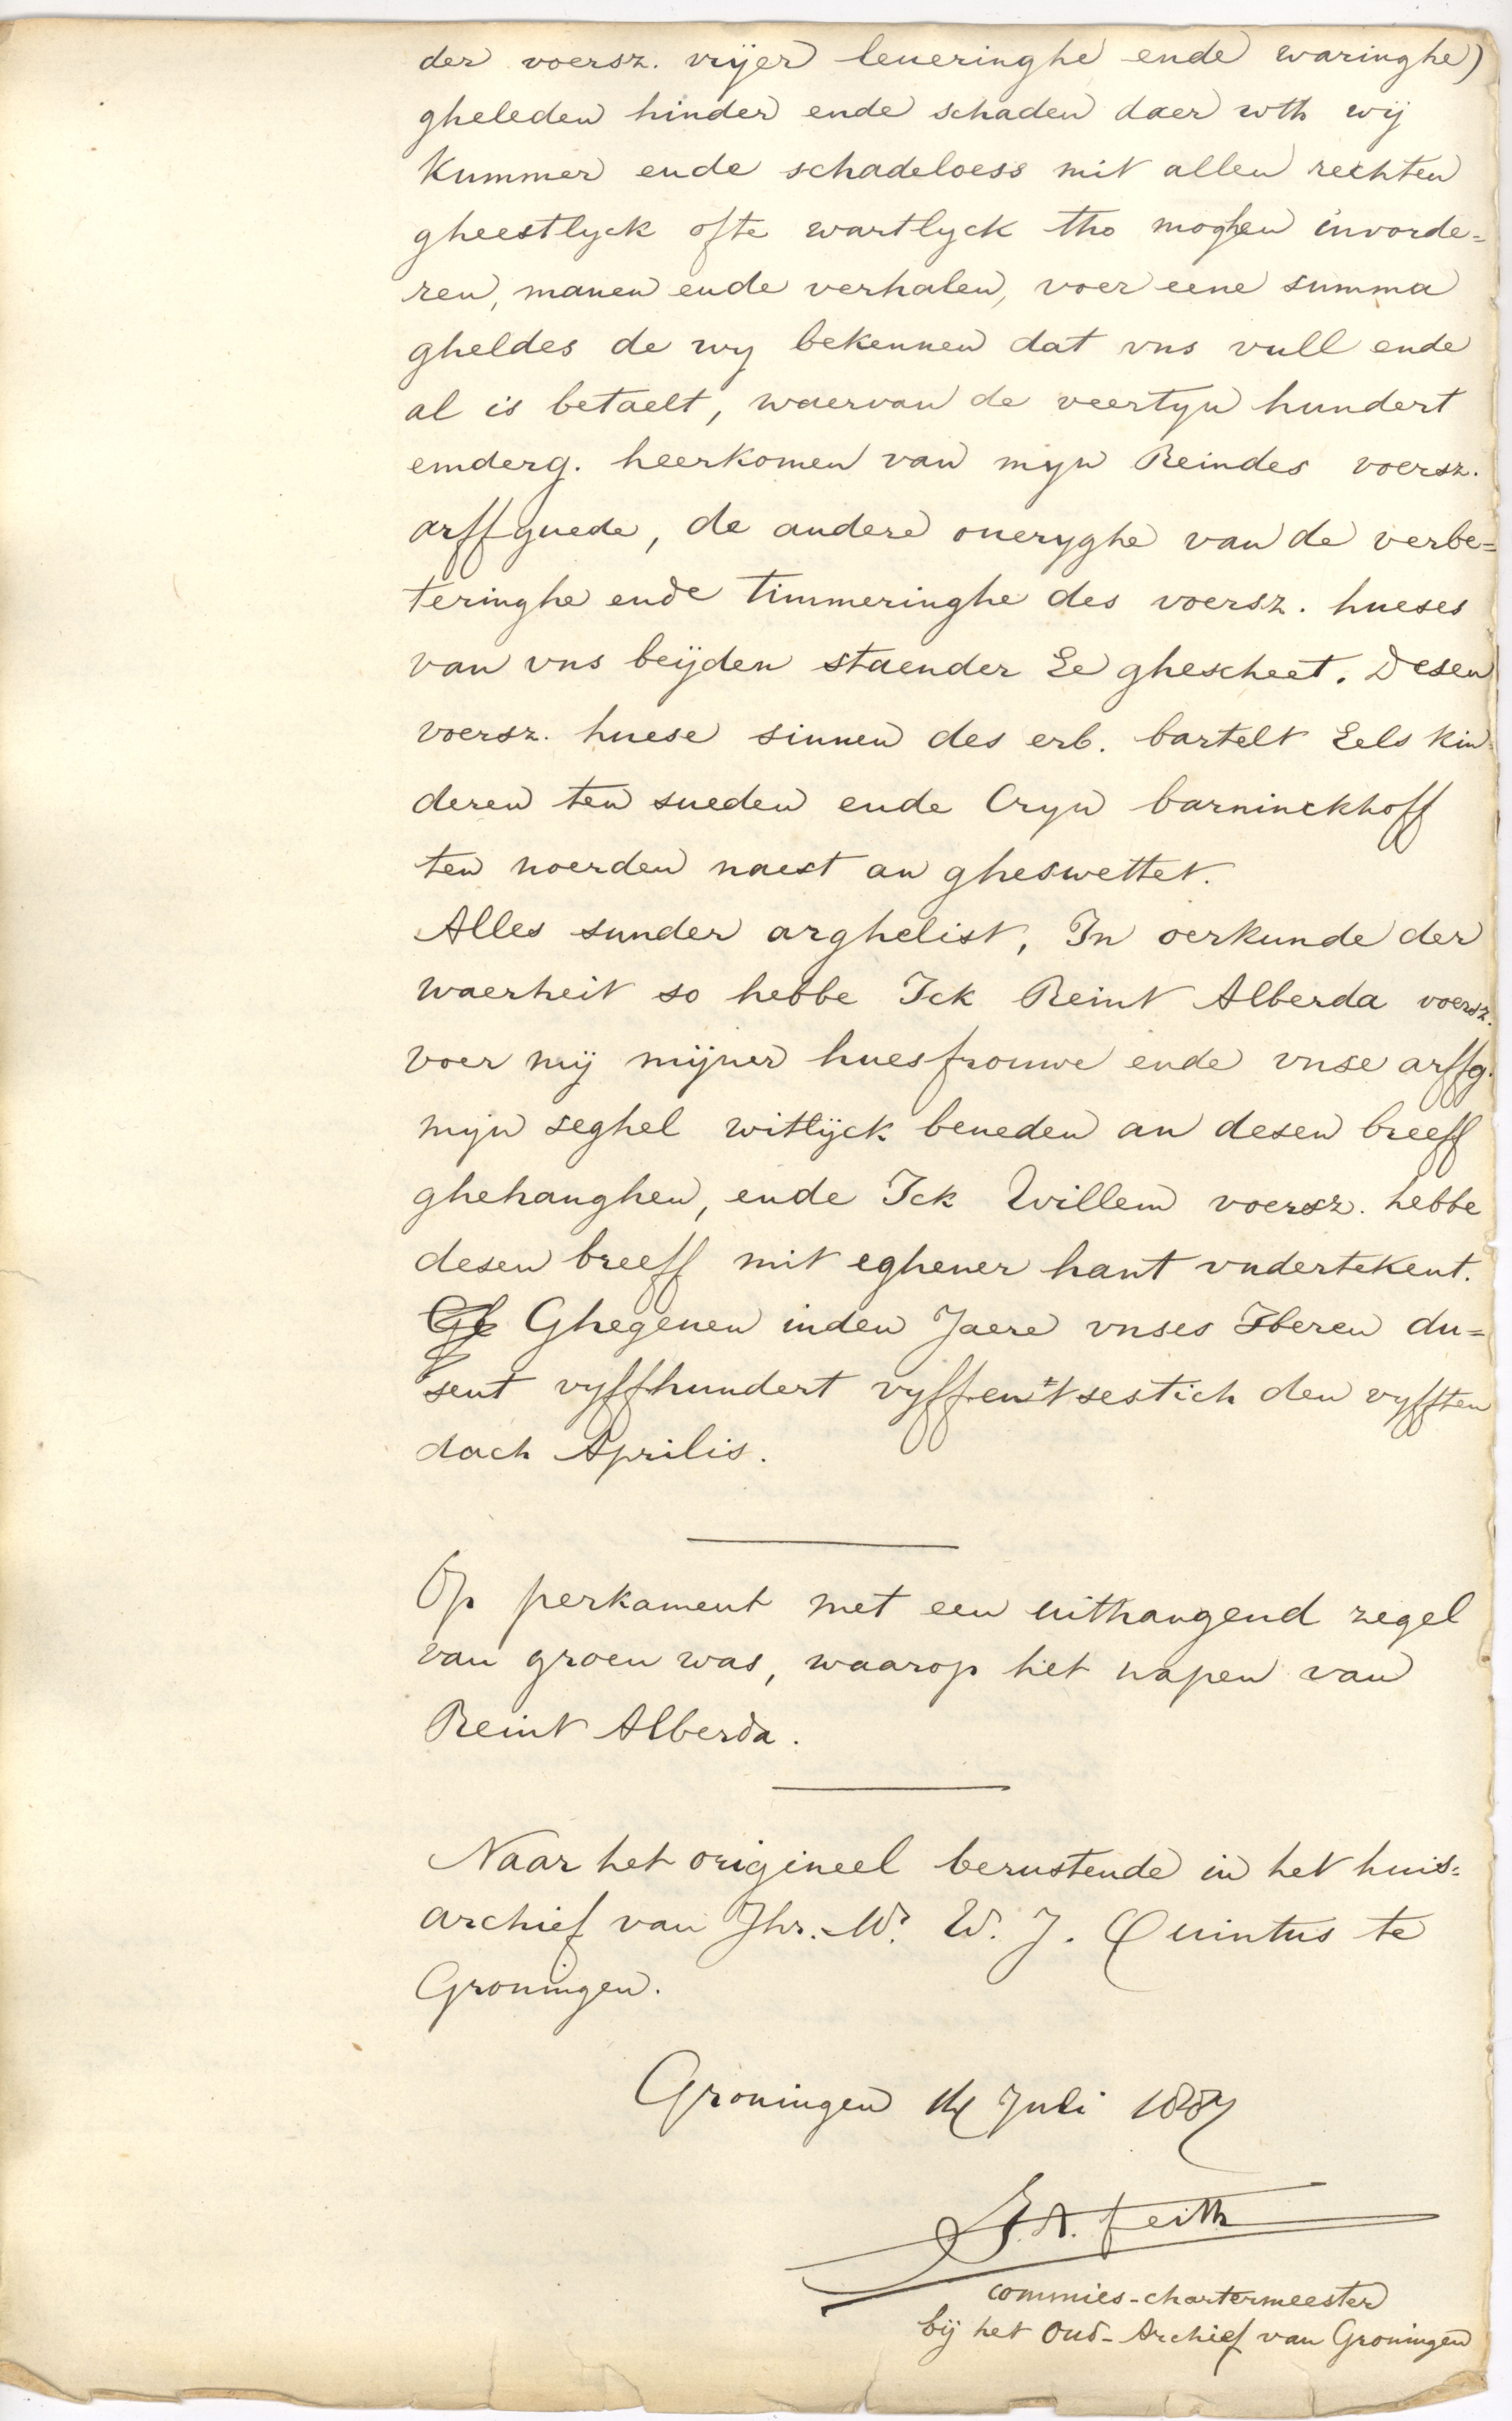 der voersz. vrijer leueringhe ende waringhe)
gheleden hinder ende schaden daer wth wij
Kummer ende schadeloess mit allen rechten
gheestlyck ofte wartlyck tho moghen invorde=
ren, manen ende verhalen, voer eene summa
gheldes de wy bekennen dat vns vull ende
al is betaelt, waervan de veertyn hundert
emderg. heerkomen van myn Reindes voersz.
arffguede, de andere oueryghe van de verbe=
teringhe ende timmeringhe des voersz. hueses
van vns beijden staender Ee ghescheet. Desen
voersz. huese sinnen des erb. bartelt Eels kin=
deren ten sueden ende Cryn barninckhoff
ten noerden naest an gheswettet.
Alles sunder arghelist, In oerkunde der
waerheit so hebbe Ick Reint Alberda voersz.
voer mij mijner huesfrouwe ende vnse arffg.
myn seghel witlijck beneden an desen breeff
ghehanghen, ende Ick Willem voersz. hebbe
desen breeff mit eghener hant vndertekent.
Ghegeuen inden Jaere vnses Heren du=
sent vyffhundert vyffentsestich den vyfften
dach Aprilis.
Op perkament met een uithangend zegel
van groen was, waarop het wapen van
Reint Alberda.
Naar het origineel berustende in het huis=
archief van Jhr. Mr. W. J. Quintus te
Groningen.
Groningen Juli 1887
J.A. Feith
commies-chartermeester
bij het Oud-Archief van Groningen